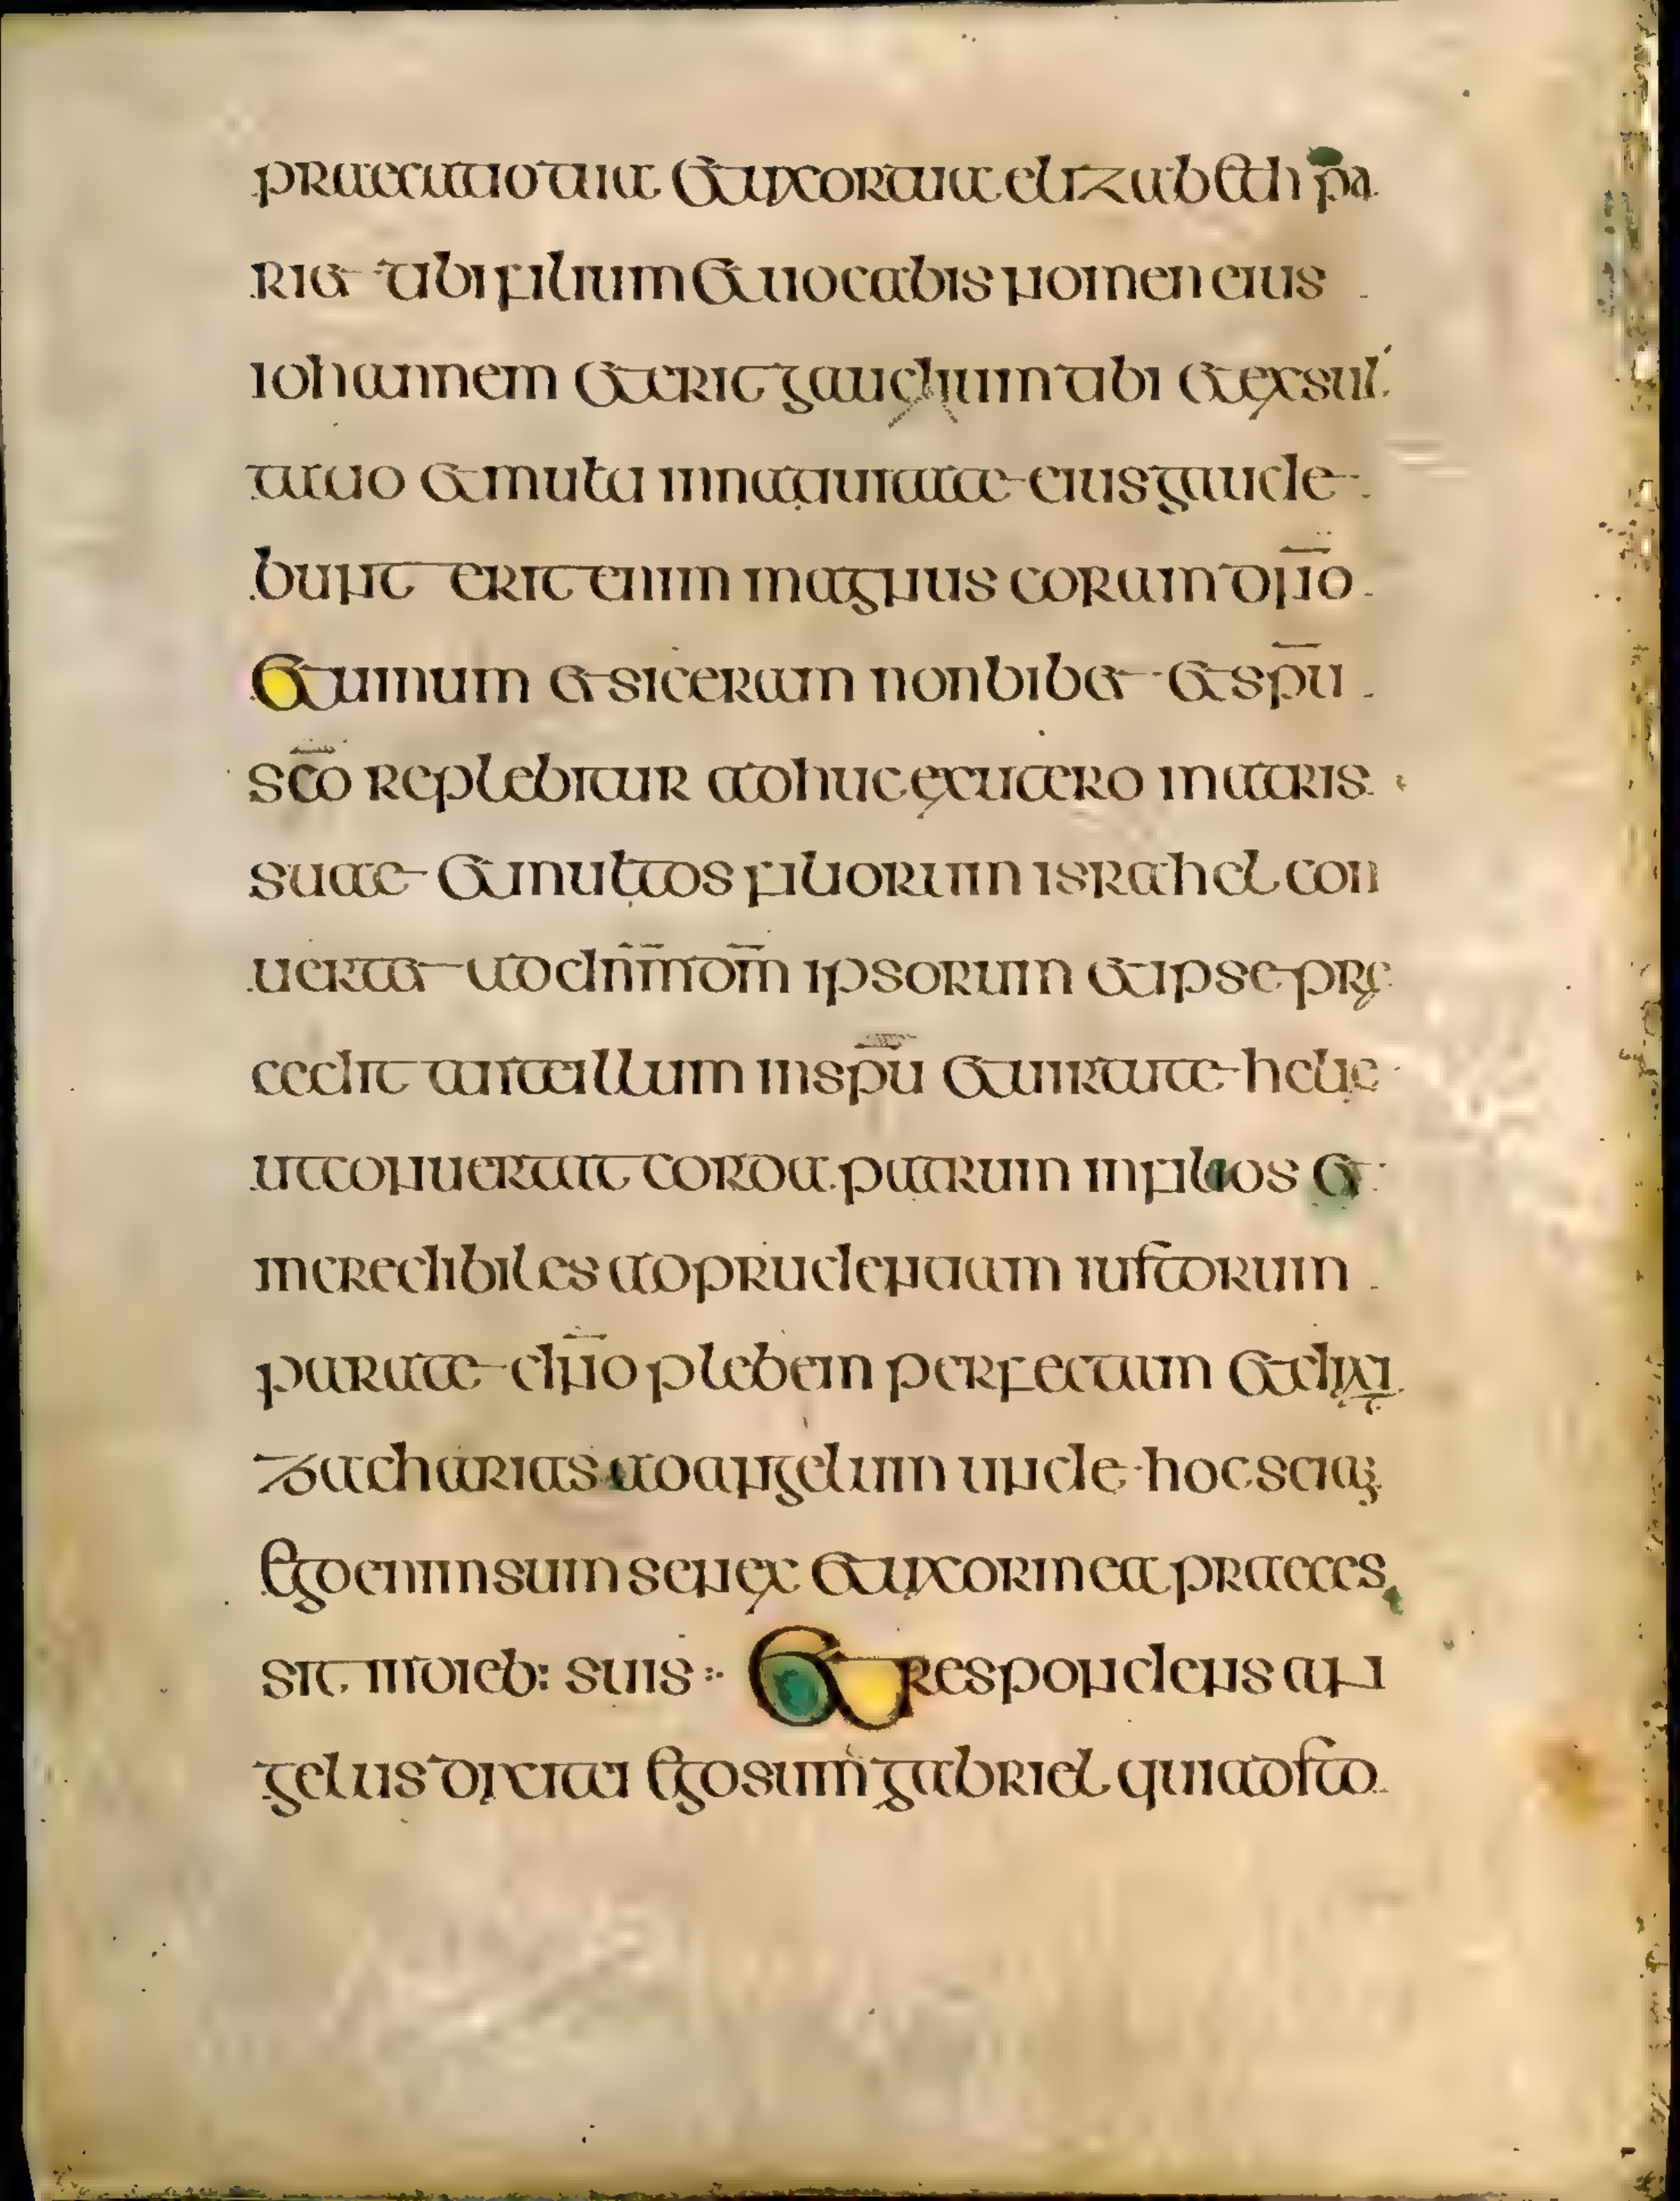 praecatio tua et uxor tua elizabeth pa
riet tibi filium et uocabis nomen eius
iohannem et erit gaudium tibi et exsul
tatio et multi in natiuitate eius gaude
bunt erit enim magnus coram dn̄o
et uinum et siceram non bibet et sp̄u
sc̄o replebitur adhuc ex utero matris
suae et multos filiorum israhel con
uertet ad dn̄m dm̄ ipsorum et ipse prę
cedit ante illum in sp̄u et uirtute helie
ut conuertat corda patrum in filios et
incredibiles ad prudentiam iustorum
parate dn̄o plebem perfectam et dixit
zacharias ad angelum unde hoc sciam
Ego enim sum senex et uxor mea praeces
sit in dieb: suis :· Et respondens an
gelus dixit ei Ego sum gabriel qui adsto